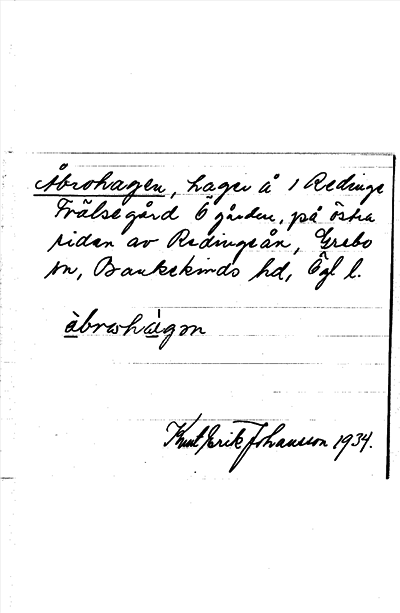 Åbrohagen, hage å 1 Redinge
Frälsegård Ögården, på östra
sidan av Redingeån, Grebo
sn, Bankekinds hd, Ögl l.
åbrωhàgən
Knut Erik Johansson 1934.